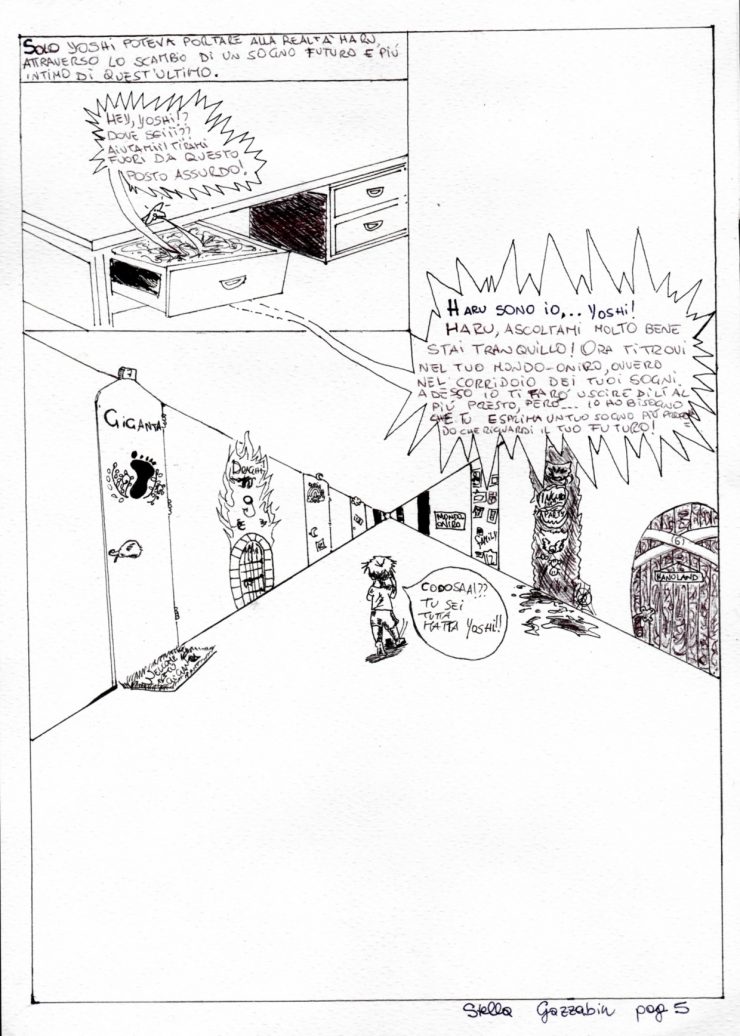 SOLO YOSHI POTEVA PORTARE ALLA REALTÀ HARU
ATTRAVERSO LO SCAMBIO DI UN SOGNO FUTURO E PIÙ
INTIMO DI QUEST'ULTIMO.
HEY, YOSHI!?
DOVE SEIII??
AIUTAMI! TIRAMI
FUORI DA QUESTO
POSTO ASSURDO!
HARU SONO IO,... YOSHI!
HARU, ASCOLTAMI MOLTO BENE
STAI TRANQUILLO! ORA TI TROVI
NEL TUO MONDO-ONIRO, OVVERO
NEL CORRIDOIO DEI TUOI SOGNI.
ADESSO IO TI FARÒ USCIRE DI LÌ AL
PIÙ PRESTO, PERÒ... IO HO BISEGNO
CHE TU ESPLIMA UN TUO SOGNO PIÙ
DO CHE RIGUARDI IL TUO FUTURO!
GIGANTA
DRAGHI
MONDO
ONIRO
FAMILY
12
(6)
NANOLAND
WELCOME
CODOSAAI??
TU SEI
TUTTA
MATTA YOSHI!!
Stella Gazzabin pag 5